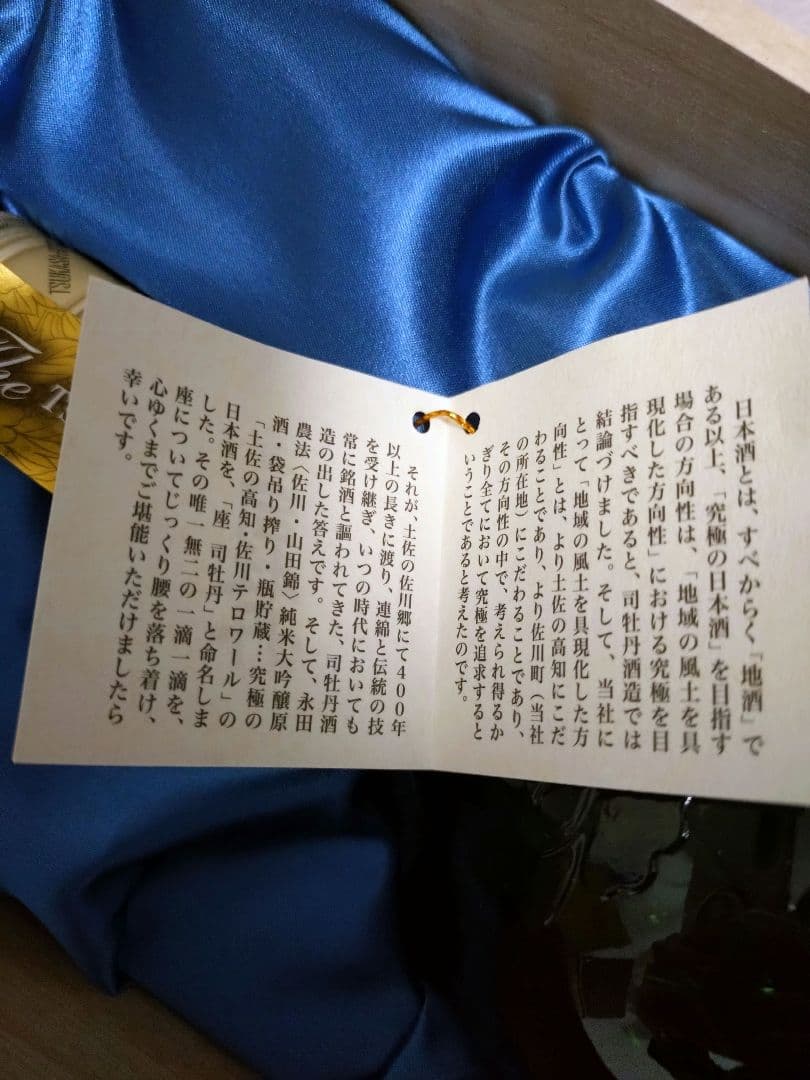 日本酒とは、すべからく「地酒」で
ある以上、「究極の日本酒」を目指す
場合の方向性は、「地域の風土を具
現化した方向性」における究極を目
指すべきであると、司牡丹酒造では
結論づけました。そして、当社に
とって「地域の風土を具現化した方
向性」とは、より土佐の高知にこだ
わることであり、より佐川町（当社
の所在地）にこだわることであり、
その方向性の中で、考えられ得るか
ぎり全てにおいて究極を追求すると
いうことであると考えたのです。
それが、土佐の佐川郷にて400年
以上の長きに渡り、連綿と伝統の技
を受け継ぎ、いつの時代においても
常に銘酒と謳われてきた、司牡丹酒
造の出した答えです。そして、永田
農法〈佐川・山田錦〉純米大吟醸原
酒・袋吊り搾り・瓶貯蔵…究極の
「土佐の高知・佐川テロワール」の
日本酒を、「座 司牡丹」と命名しま
した。その唯一無二の一滴一滴を、
座についてじっくり腰を落ち着け、
心ゆくまでご堪能いただけましたら
幸いです。
The